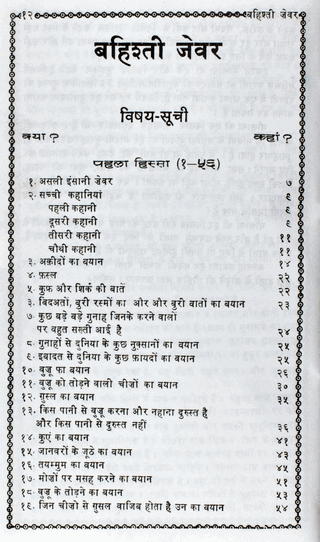 १२
बहिश्ती जेवर
बहिश्ती जेवर
विषय-सूची
क्या ? कहां ?
पहला हिस्सा (१-५६)
१. असली इंसानी जेवर ७
२. सच्ची कहानियां ९
पहली कहानी ९
दूसरी कहानी ९
तीसरी कहानी ११
चौथी कहानी ११
३. अक़ीदों का बयान १४
४. फ़स्ल २२
५. कुफ़ और शिर्क की बातें २२
३. बिदअतों, बुरी रस्मों का और और बुरी बातों का बयान २३
७. कुछ बड़े बड़े गुनाह जिनके करने वालों
पर बहुत सख्ती आई है २४
८. गुनाहों से दुनिया के कुछ नुक्सानों का बयान २५
९. इबादत से दुनिया के कुछ फ़ायदों का बयान २५
१०. वुज़ू का बयान २६
११. वुज़ू को तोड़ने वाली चीज़ों का बयान ३०
१२. गुस्ल का बयान ३५
१३. किस पानी से वुज़ू करना और नहाना दुरुस्त है
और किस पानी से दुरुस्त नहीं ३६
१४. कुएं का बयान ४१
१५. जानवरों के जूठे का बयान ४३
१६. तयम्मुम का बयान ४५
१७. मोज़ों पर मसह करने का बयान ५१
१८. वुज़ू के तोड़ने का बयान ५३
१९. जिन चीज़ों से गुसल वाजिब होता है उन का बयान ५४